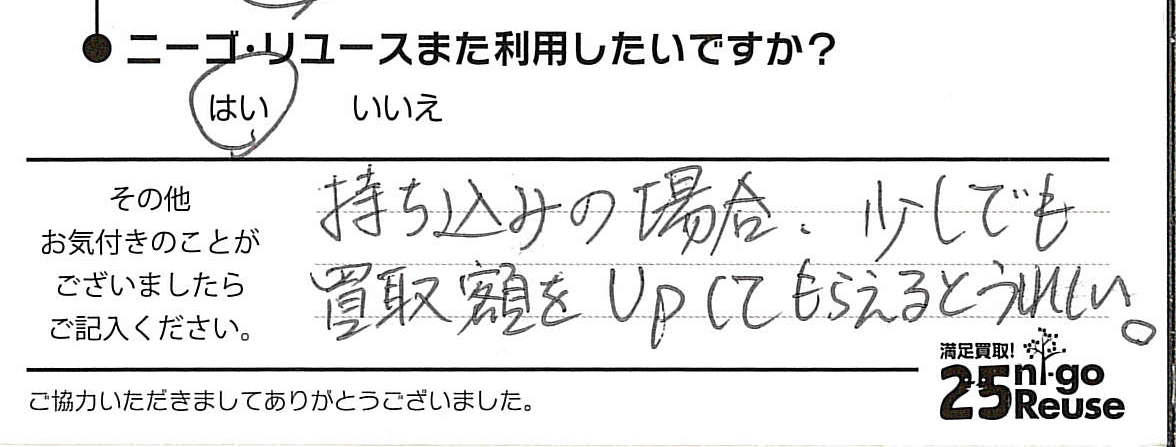 ● ニーゴ・リユースまた利用したいですか？
はい いいえ
その他
お気付きのことが
ございましたら
ご記入ください。
持ち込みの場合、少しでも
買取額をUpしてもらえるとうれしい。
満足買取!
25 ni-go
Reuse
ご協力いただきましてありがとうございました。